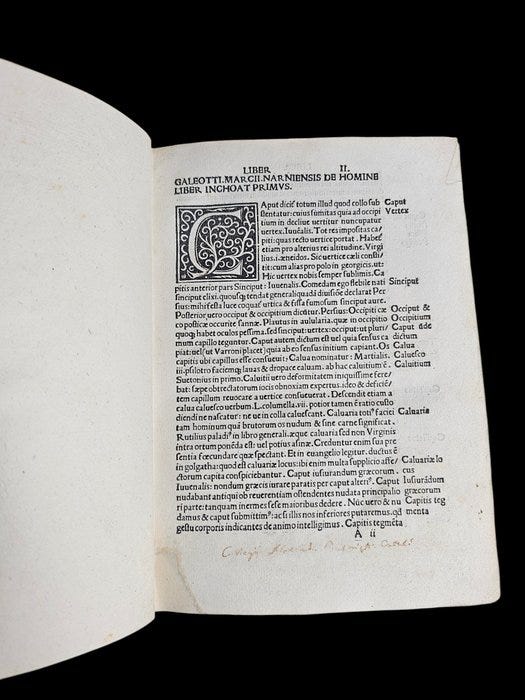 LIBER II.
GALEOTTI.MARCII.NARNIENSIS DE HOMINE
LIBER INCHOAT PRIMVS.
CAput dicit totum illud quod collo sub Caput
stentatur: cuius sumitas quia ad occipi Vertex
tium in decliue uertitur nuncupatur
uertex. Iuuenalis. Tot res impositas ca/
piti: quas recto uertice portat. Habet
etiam pro alterius rei altitudine. Virgi
lius.i.æneidos. Sic uertice cæli consti/
tit: cum alias pro polo in georgicis.ut:
Hic uertex nobis semper sublimis. Ca
pitis anterior pars Sinciput: Iuuenalis. Comedam ego flebile nati Sinciput
sinciput elixi. quousq; tendat generali quadā diuisiōe declarat Per
sius: mihi festa luce coquat̃ urtica & fissa fumosum sinciput aure.
Posterior uero occiput & occipitium dicitur. Persius: Occipiti cæ Occiput &
co posticæ occurite sannæ. Plautus in aulularia. quæ in occipitio Occipitium
quoq; habet oculos pessima. sed sinciput: uertex: occiput: ut pluri/ Caput õde
mum capillo teguntur. Caput autem dictum est uel quia sensus ca dictum
piat: uel (ut Varroni placet) quia ab eo sensus initium capiant. Os Calua
capitis ubi capillus esse consueuit: Calua nominatur: Martialis. Caluesco
iii. psilotro faciem q; lauas & dropace caluam. ab hac caluitium ē. Caluitium
Suetonius in primo. Caluitii uero deformitatem iniquissime fere/
bat: sæpe obtrectatorum iocis obnoxiam expertus. ideo & deficiē/
tem capillum reuocare a uertice consueuerat. Descendit etiam a
calua caluesco uerbum. L. columella .vii. potior tamen ē ratio custo
diendi ne nascatur: ne ue in colla caluescant. Caluaria tot⁹ faciei Caluaria
tam hominum qui brutorum os nudum & sine carne significat.
Rutilius paladi⁹ in libro generali. æque caluaria sed non Virginis
intra ortum ponēda est: uel potius asinæ. Creduntur enim sua præ
sentia fœcundare quæ spectant. Et in euangelio legitur. ductus ē
in golgatha: quod est caluariæ locus: ibi enim multa supplicio affe/ Caluariæ lo
ctorum capita conspiciebantur. Caput iusiurandum græcorum. cus
Iuuenalis: nondum græcis iurare paratis per caput alteri⁹. Caput Iusiurādum
nudabant antiqui ob reuerentiam ostendentes nudata principalio græcorum
ri parte: tanquam inermes sese maioribus dedere. Nūc uero & nu Capitis teg
damus & caput submittim⁹: ac si illis nos inferiores putaremus. qđ menta
gestu corporis indicantes de animo intelligimus. Capitis tegmēta
A ii